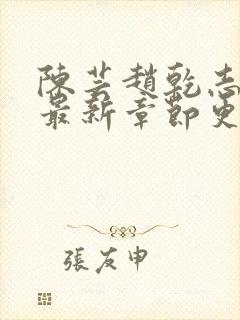 陳芸趙乾志
最新章節更
張友申